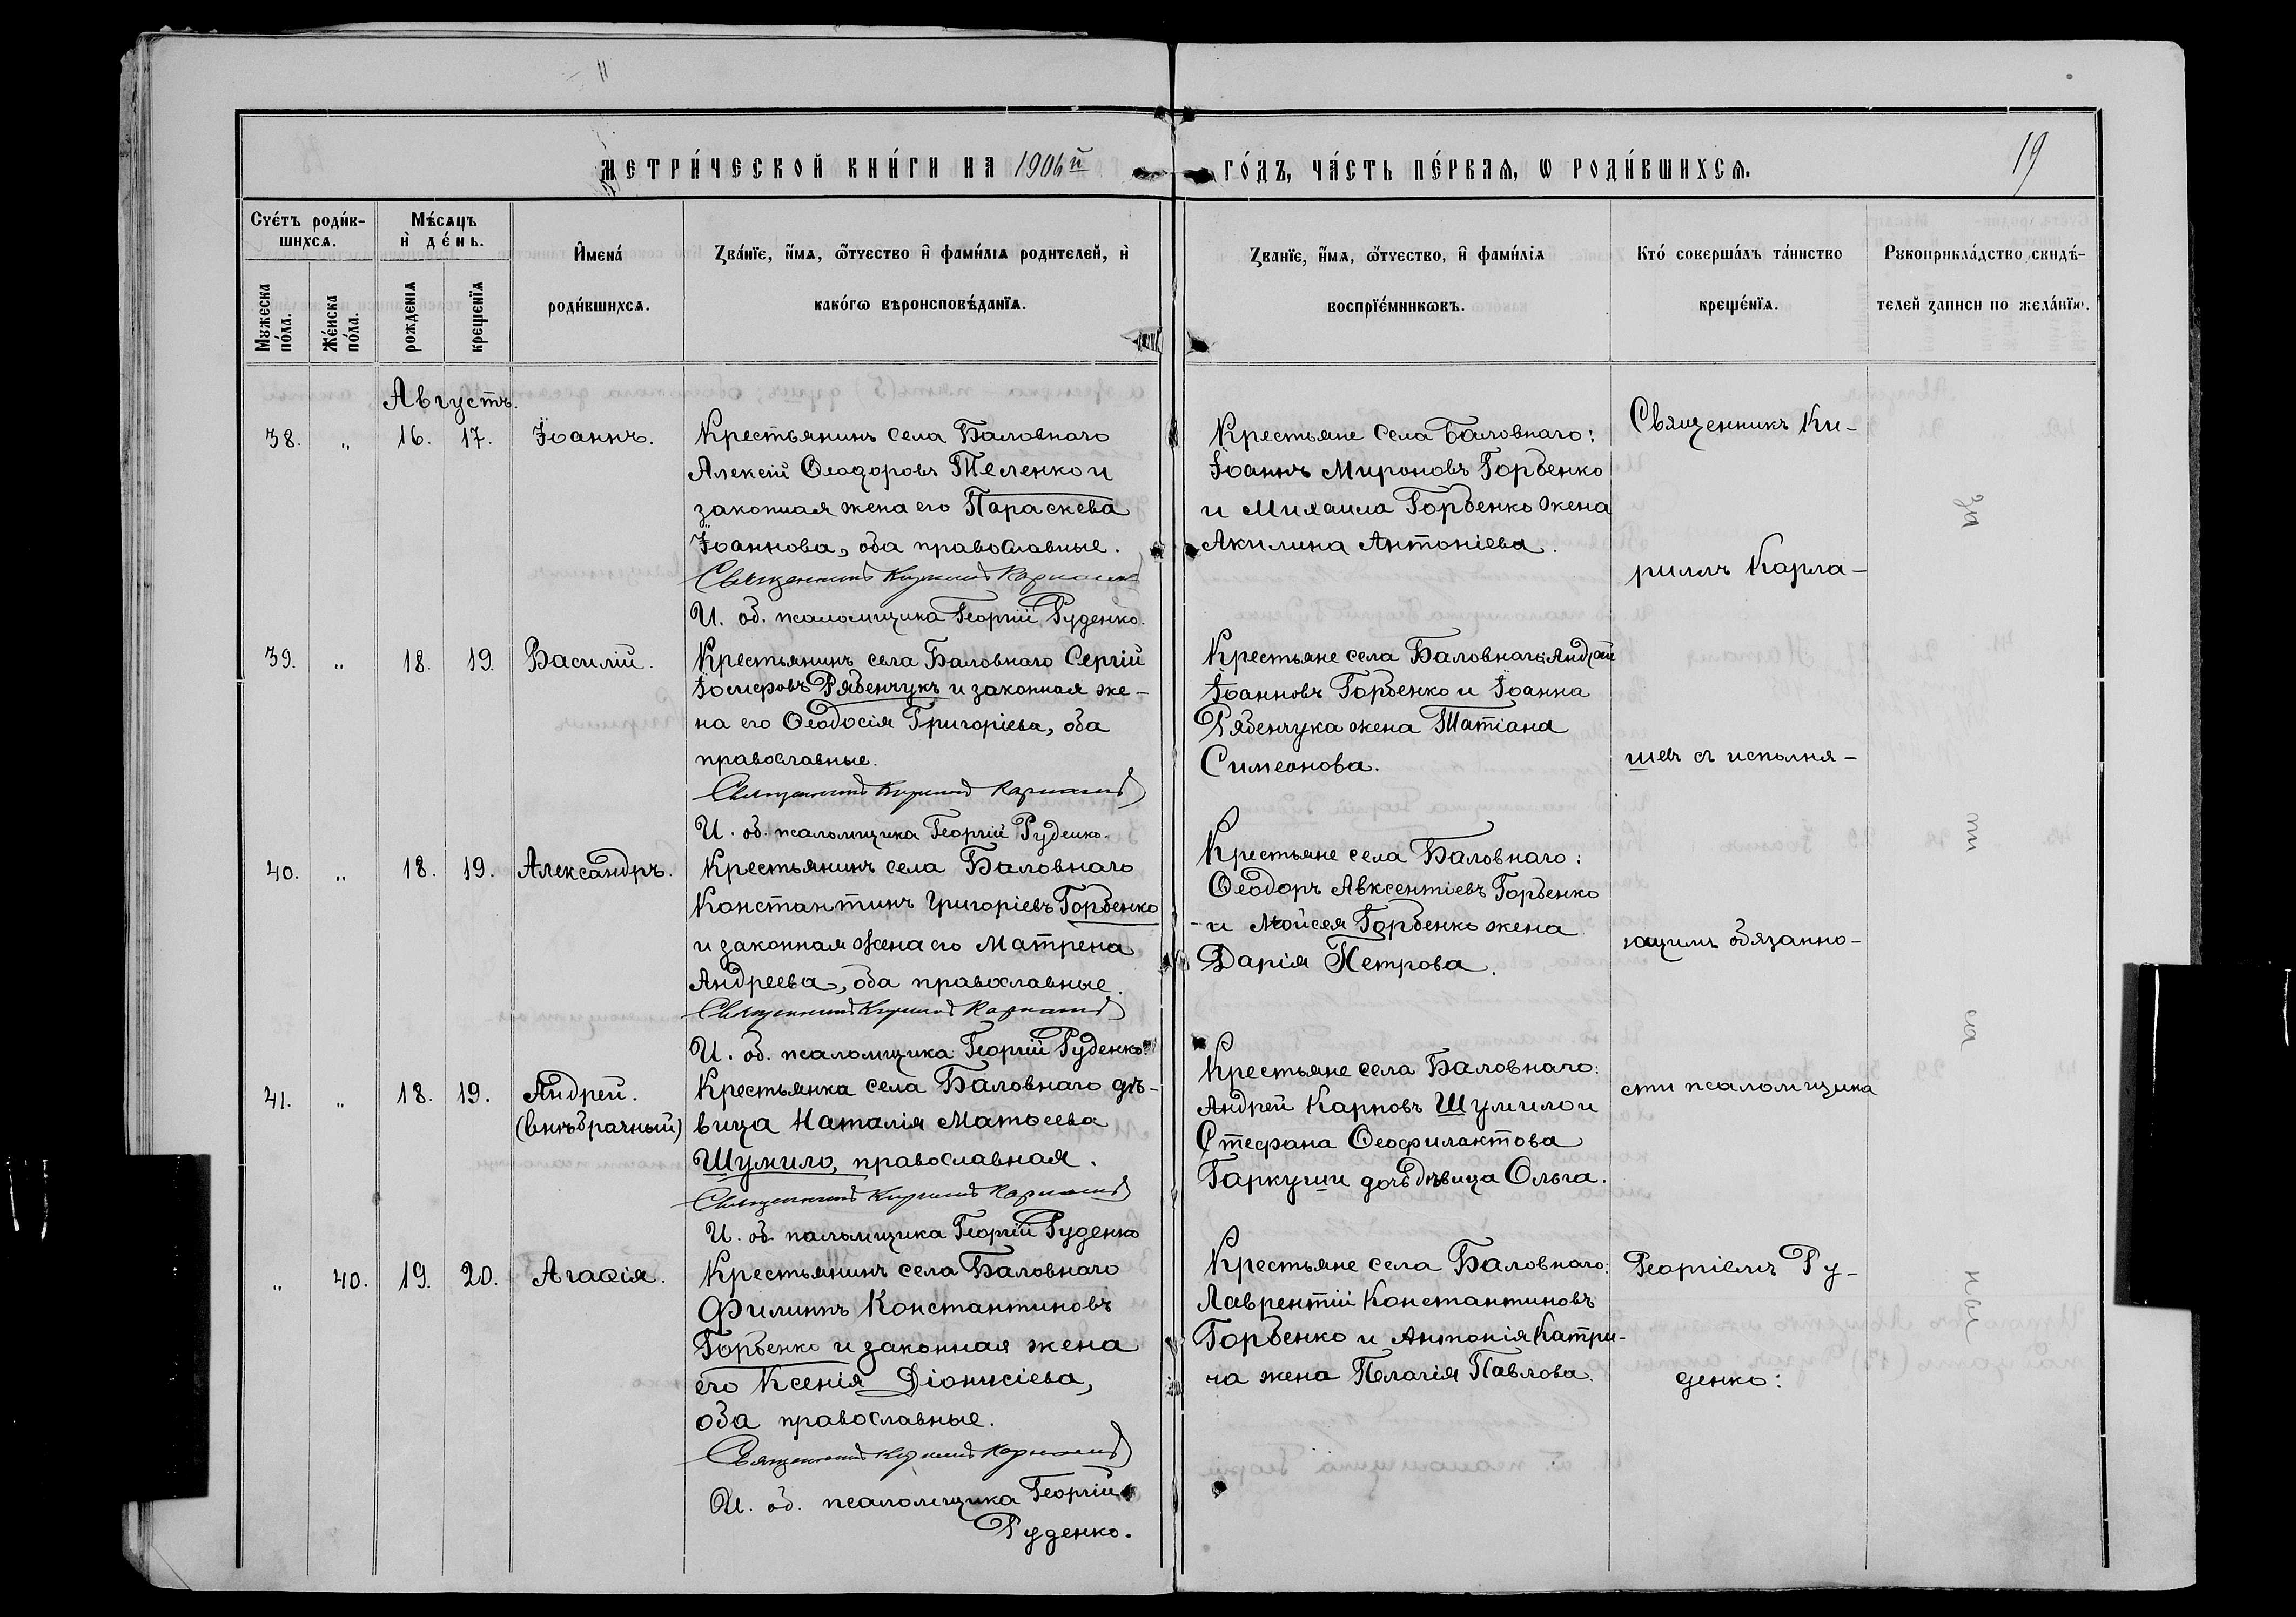 МЕТРИ́ЧЕСКОЙ КНИ́ГИ НА 1906й ГО́ДЪ, ЧА́СТЬ ПЕ́РВАѦ, Ѡ РОДИ́ВШИХСѦ.
19
Сче́тъ роди́в-
шихсѧ.
Му́жеска по́ла.
Же́нска по́ла.
Мѣ́сѧцъ
и҆ де́нь.
рожденїѧ
крещенїѧ
И҆мена́
роди́вшихсѧ.
Зва́нїе, и҆́мѧ, ѻ҆́тчество и҆ фами́лїѧ родителей, и҆
како́гѡ вѣроисповѣ́данїѧ.
Зва́нїе, и҆́мѧ, ѻ҆́тчество, и҆ фами́лїѧ
воспрїе́мникѡвъ.
Кто́ соверша́лъ та́инство
креще́нїѧ.
Рукоприкла́дство свидѣ́-
телей записи по жела́нїю.
Августъ.
38. " 16. 17. Іоаннъ.
Крестьянинъ села Баловнаго
Алексій Ѳеодоровъ Теленко и
законная жена его Параскева
Іоаннова, оба православные.
Священникъ Кириллъ Карпашевъ
И. об. псаломщика Георгій Руденко.
Крестьяне села Баловнаго:
Іоаннъ Мироновъ Горбенко
и Михаила Горбенко жена
Акилина Антоніева.
39. " 18. 19. Василій.
Крестьянинъ села Баловнаго Сергій
Іосифовъ Рябенчукъ и законная же-
на его Ѳеодосія Григоріева, оба
православные.
Священникъ Кириллъ
И. об. псаломщика Георгій Руденко.
Крестьяне села Баловнаго: Андрей
Іоанновъ Горбенко и Іоанна
Рябенчука жена Татіана
Симеонова.
40. " 18. 19. Александръ.
Крестьянинъ села Баловнаго
Константинъ Григоріевъ Горбенко
и законная жена его Матрена
Андреева, оба православные.
Священникъ Кириллъ
И. об. псаломщика Георгій Руденко.
Крестьяне села Баловнаго:
Ѳеодоръ Авксентіевъ Горбенко
и Мойсея Горбенко жена
Дарія Петрова.
41. " 18. 19. Андрей.
(внѣбрачный)
Крестьянка села Баловнаго дѣ-
вица Наталія Матѳеева
Шумило, православная.
Священникъ Кириллъ
И. об. псаломщика Георгій Руденко
Крестьяне села Баловнаго:
Андрей Карповъ Шумило и
Стефана Ѳеофилактова
Гаркуши дочь дѣвица Ольга.
" 40. 19. 20. Агаѳія.
Крестьянинъ села Баловнаго
Филиппъ Константиновъ
Горбенко и законная жена
его Ксенія Діонисіева,
оба православные.
Священникъ Кириллъ
И. об. псаломщика Георгій
Руденко.
Крестьяне села Баловнаго:
Лаврентій Константиновъ
Горбенко и Антонія Катри-
ча жена Пелагія Павлова.
Священникъ Ки-
риллъ Карпа-
шевъ съ исполня-
ющимъ обязанно-
сти псаломщика
Георгіемъ Ру-
денко:
за
пи
са
ны